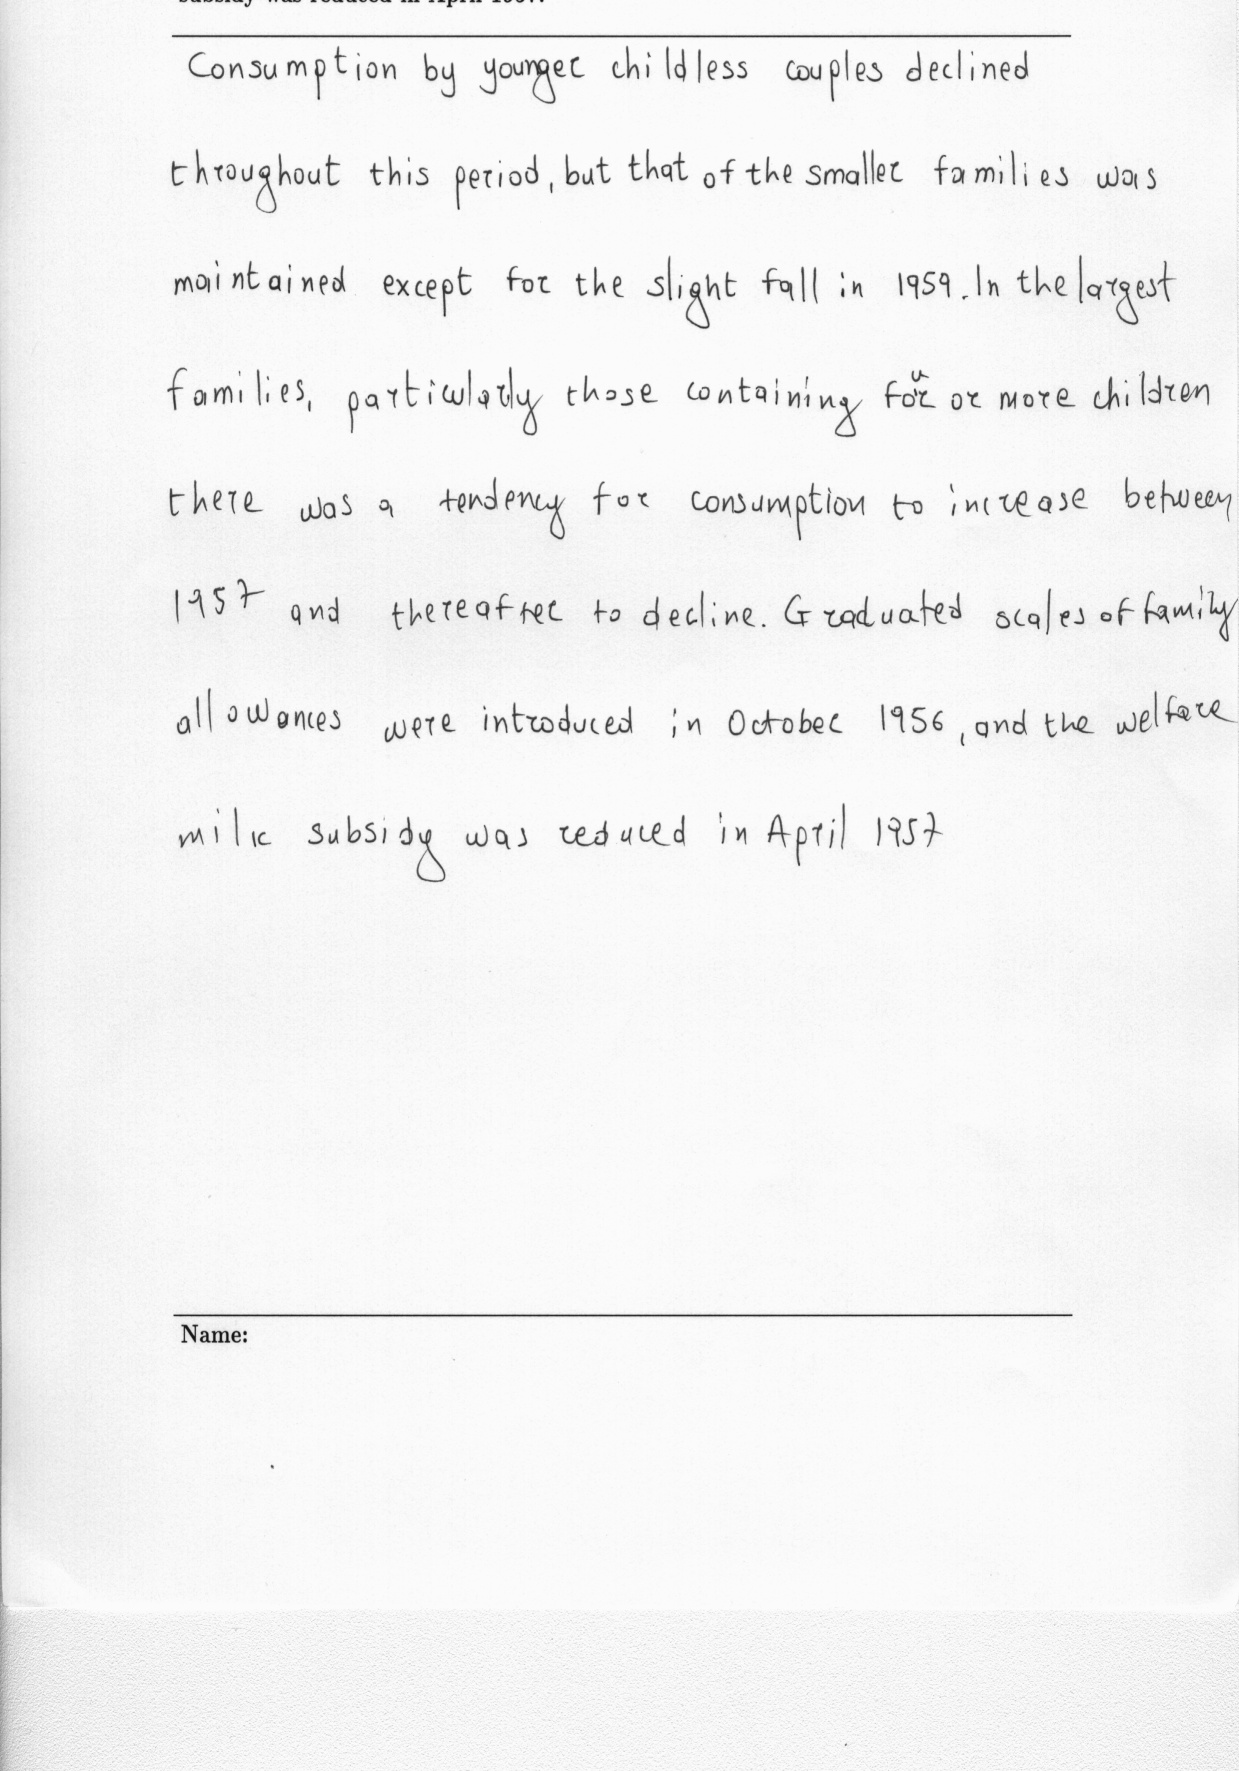 subsidy was reduced in April 1957.
Consumption by younger childless couples declined
throughout this period, but that of the smaller families was
maintained except for the slight fall in 1959. In the largest
families, particularly those containing four or more children
there was a tendency for consumption to increase between
1957 and thereafter to decline. Graduated scales of family
allowances were introduced in October 1956, and the welfare
milk subsidy was reduced in April 1957
Name: